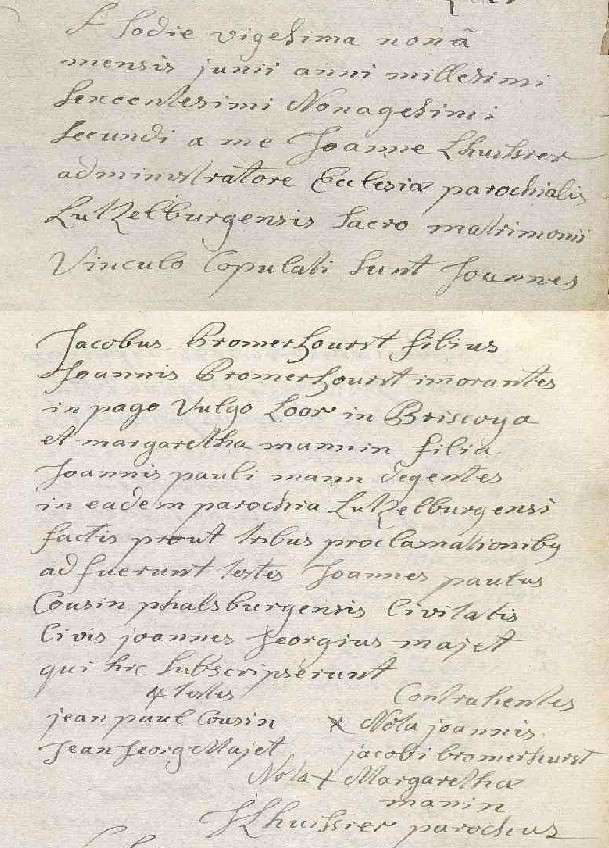 Hodie vigesima nonâ
mensis junii anni millesimi
sexcentesimi Nonagesimi
secundi a me Joanne Lhuissier
administratore Ecclesiæ parochialis
Lutzelburgensis sacro matrimonii
Vinculo Copulati sunt Joannes
Jacobus Bromerhourst filius
Joannis Bromerhourst morantes
in pago vulgo Loor in Briscoya
et margaretha mannin filia
Joannis pauli mann degentes
in eadem parochia Lutzelburgensi
factis prout tribus proclamationibus
adfuerunt testes Joannes paulus
Cousin phalsburgensis Civitatis
Civis joannes Georgius majet
qui hic subscripserunt
testes Contrahentes
jean paul Cousin x Nota joannis
Jean George Majet jacobi bromerhurst
Nota x Margarethæ
manin
J Lhuissier parochus